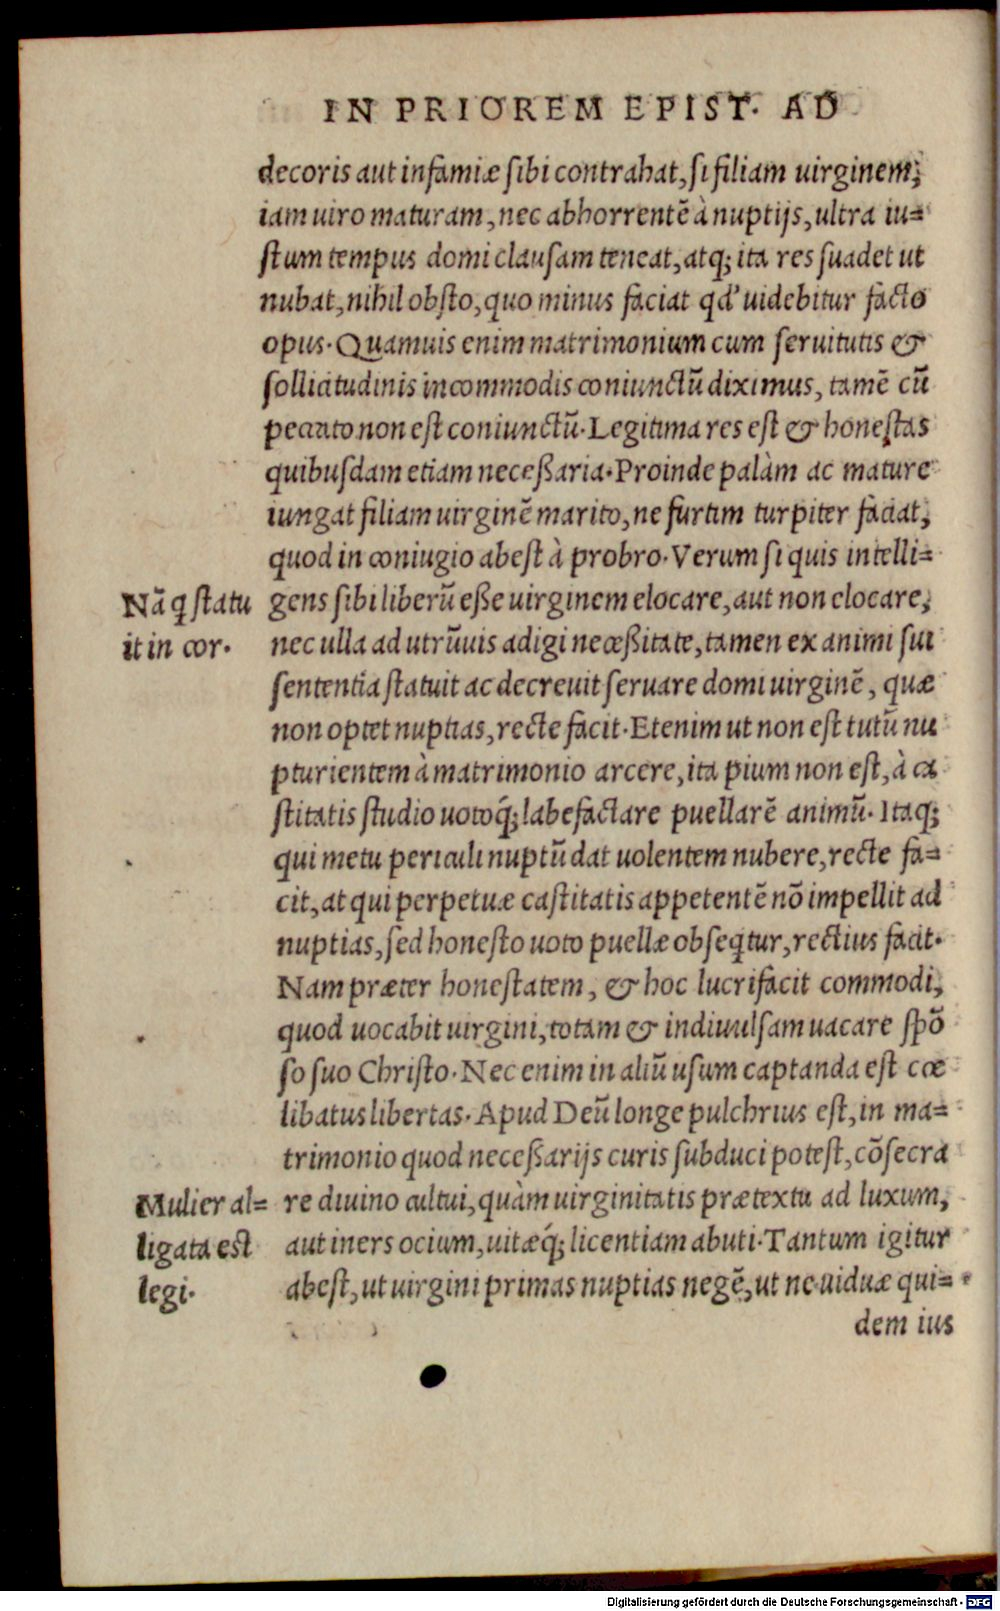 IN PRIOREM EPIST. AD
decoris aut infamiæ ſibi contrahat, ſi filiam uirginem,
iam uiro maturam, nec abhorrentē à nuptijs, ultra iu-
ſtum tempus domi clauſam teneat, atq; ita res ſuadet ut
nubat, nihil obſto, quo minus faciat qd' uidebitur facto
opus. Quamuis enim matrimonium cum ſeruitutis &
ſollicitudinis incommodis coniunctū diximus, tamē cū
peccato non eſt coniunctū. Legitima res eſt & honeſtas
quibuſdam etiam neceßaria. Proinde palàm ac mature
iungat filiam uirginē marito, ne furtim turpiter faciat,
quod in coniugio abeſt à probro. Verum ſi quis intelli-
Nā q̃ ſtatu
it in cor.
gens ſibi liberū eße uirginem elocare, aut non elocare,
nec ulla ad utrūuis adigi neceßitate, tamen ex animi ſui
ſententia ſtatuit ac decreuit ſeruare domi uirginē, quæ
non optet nuptias, recte facit. Etenim ut non eſt tutū nu
pturientem à matrimonio arcere, ita pium non eſt, à ca
ſtitatis ſtudio uotoq́; labefactare puellarē animū. Itaq;
qui metu periculi nuptū dat uolentem nubere, recte fa-
cit, at qui perpetuæ caſtitatis appetentē nō impellit ad
nuptias, ſed honeſto uoto puellæ obſeq̃tur, rectius facit.
Nam præter honeſtatem, & hoc lucrifacit commodi,
quod uocabit uirgini, totam & indiuulſam uacare ſpō
ſo ſuo Chriſto. Nec enim in aliū uſum captanda eſt cœ
libatus libertas. Apud Deū longe pulchrius eſt, in ma-
trimonio quod neceßarijs curis ſubduci poteſt, cōſecra
Mulier al-
ligata eſt
legi.
re diuino cultui, quàm uirginitatis prætextu ad luxum,
aut iners ocium, uitæq́; licentiam abuti. Tantum igitur
abeſt, ut uirgini primas nuptias negē, ut ne uiduæ qui-
dem ius
Digitalisierung gefördert durch die Deutsche Forschungsgemeinschaft - DFG